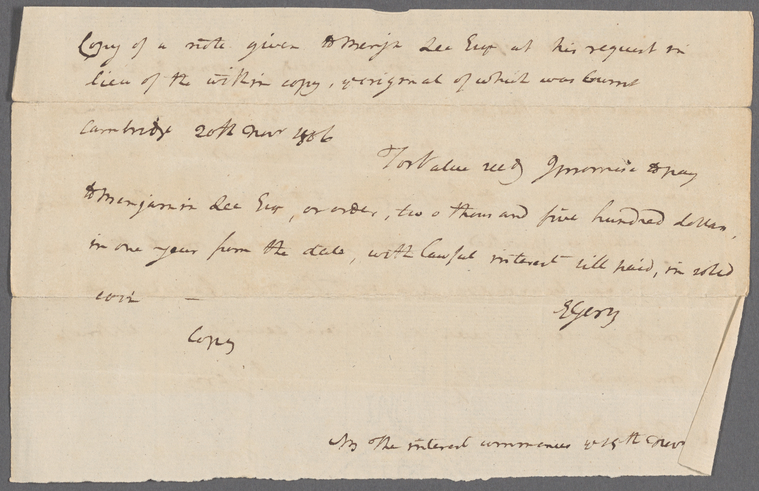 Copy of a note given to Benja Lee Esqr at his request in
lieu of the within copy, ye original of which was burnt
Cambridge 20th Novr 1806
For Value recd I promise to pay
to Benjamin Lee Esqr, or order, two thousand five hundred dollars,
in one year from the date, with lawful interest till paid, in
coin —
EGerry
Copy
NB The interest commences ye 15th Novr